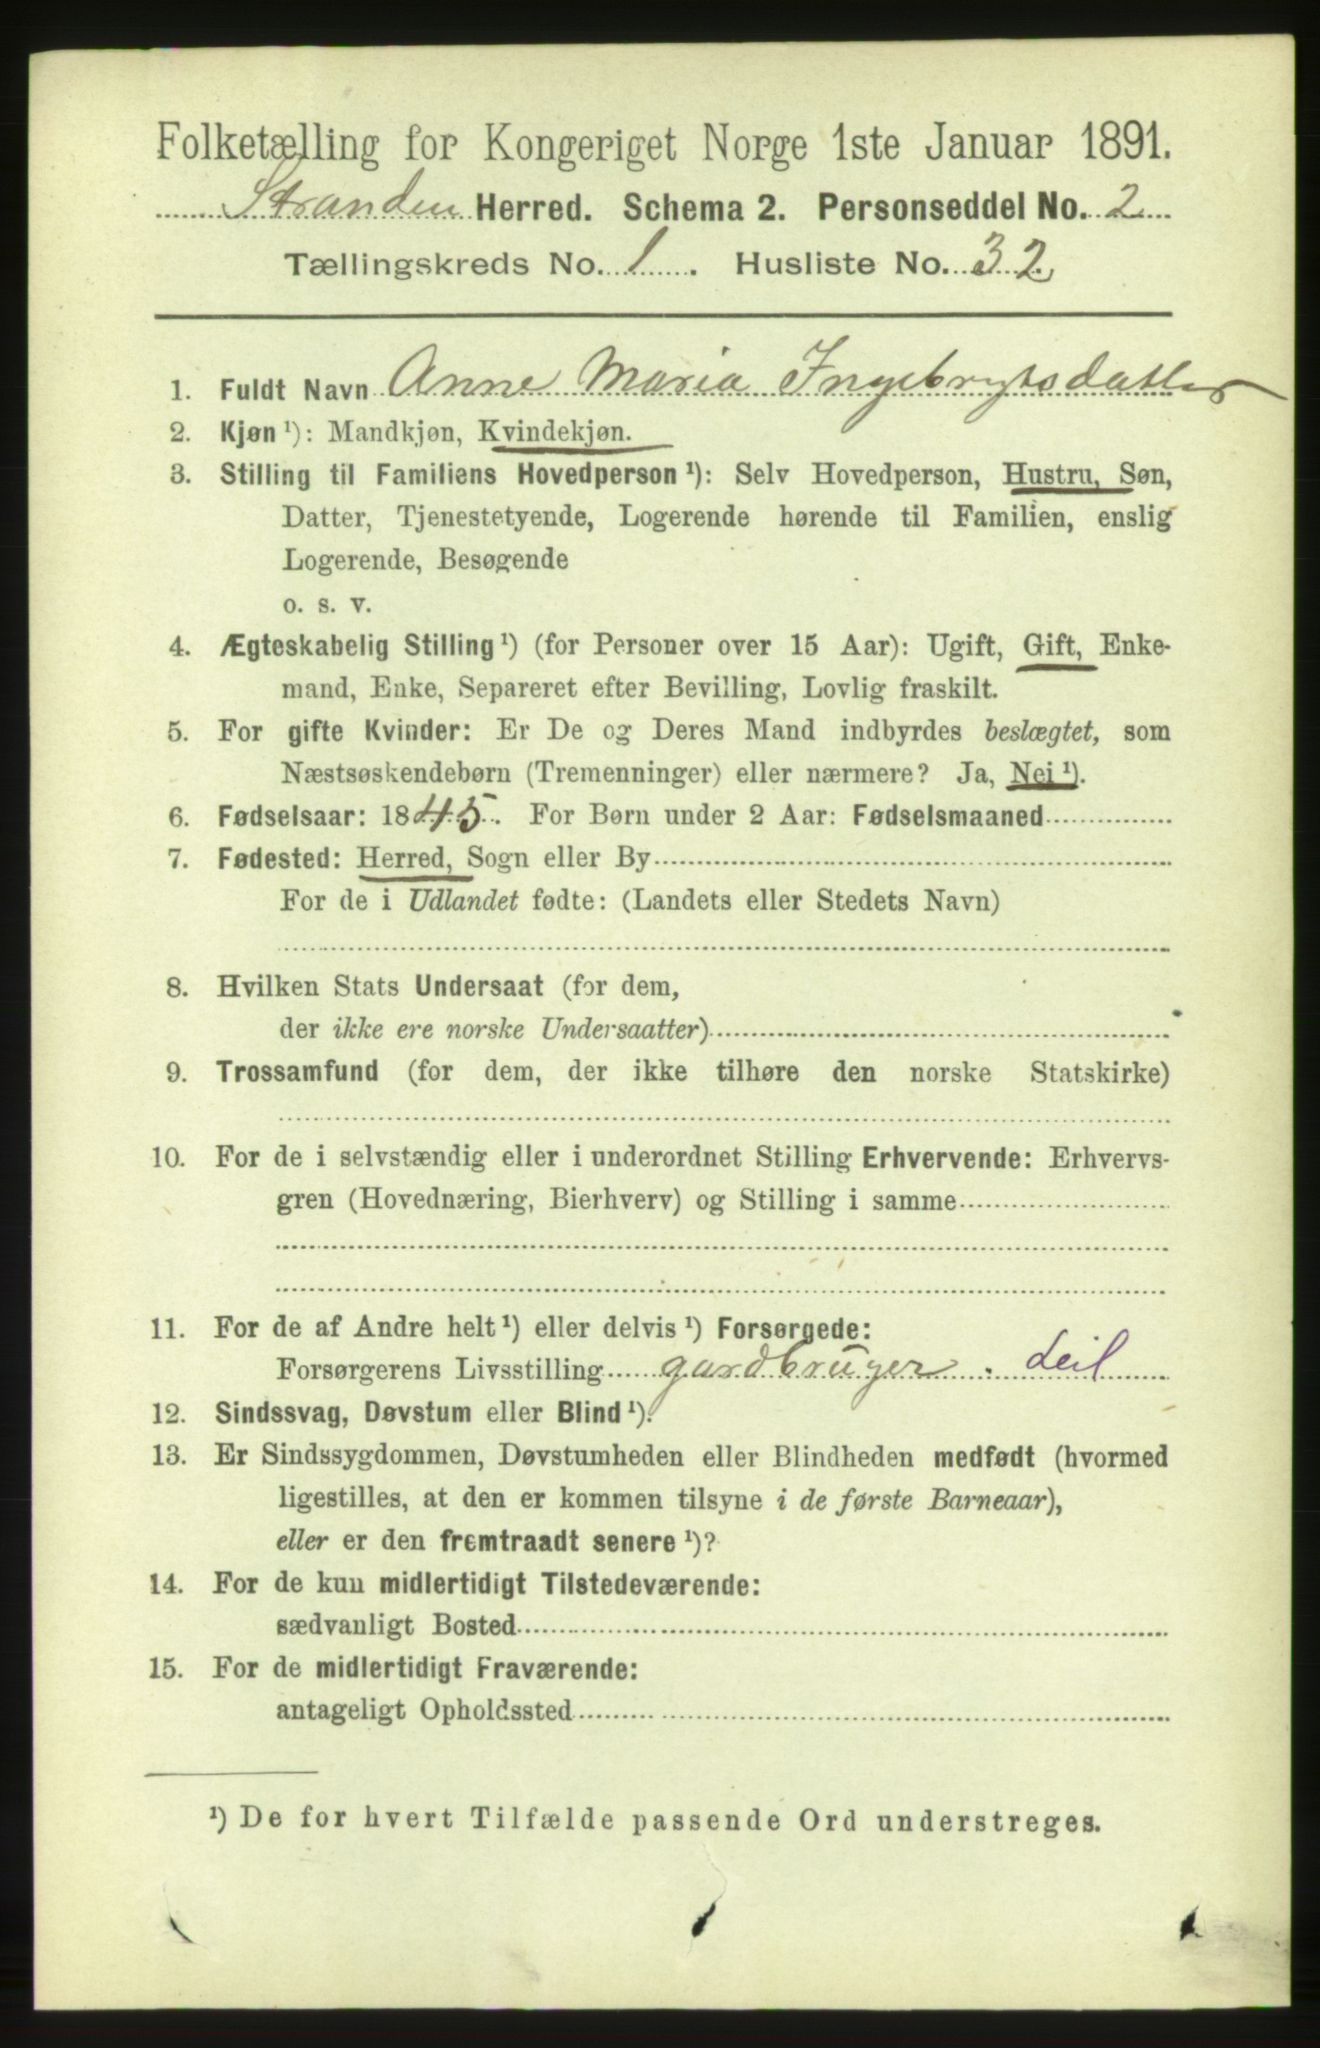 Folketælling for Kongeriget Norge 1ste Januar 1891.
Stranden Herred. Schema 2. Personseddel No. 2
Tællingskreds No. 1. Husliste No. 32
1. Fuldt Navn Anne Maria Ingebrygtsdatter
2. Kjøn ¹): Mandkjøn, Kvindekjøn.
3. Stilling til Familiens Hovedperson ¹): Selv Hovedperson, Hustru, Søn,
Datter, Tjenestetyende, Logerende hørende til Familien, enslig
Logerende, Besøgende
o. s. v.
4. Ægteskabelig Stilling ¹) (for Personer over 15 Aar): Ugift, Gift, Enke-
mand, Enke, Separeret efter Bevilling, Lovlig fraskilt.
5. For gifte Kvinder: Er De og Deres Mand indbyrdes beslægtet, som
Næstsøskendebørn (Tremenninger) eller nærmere? Ja, Nei ¹).
6. Fødselsaar: 1845. For Børn under 2 Aar: Fødselsmaaned
7. Fødested: Herred, Sogn eller By
For de i Udlandet fødte: (Landets eller Stedets Navn)
8. Hvilken Stats Undersaat (for dem,
der ikke ere norske Undersaatter)
9. Trossamfund (for dem, der ikke tilhøre den norske Statskirke)
10. For de i selvstændig eller i underordnet Stilling Erhvervende: Erhvervs-
gren (Hovednæring, Bierhverv) og Stilling i samme
11. For de af Andre helt ¹) eller delvis ¹) Forsørgede:
Forsørgerens Livsstilling gardbruger. Leil
12. Sindssvag, Døvstum eller Blind ¹).
13. Er Sindssygdommen, Døvstumheden eller Blindheden medfødt (hvormed
ligestilles, at den er kommen tilsyne i de første Barneaar),
eller er den fremtraadt senere ¹)?
14. For de kun midlertidigt Tilstedeværende:
sædvanligt Bosted
15. For de midlertidigt Fraværende:
antageligt Opholdssted
¹) De for hvert Tilfælde passende Ord understreges.